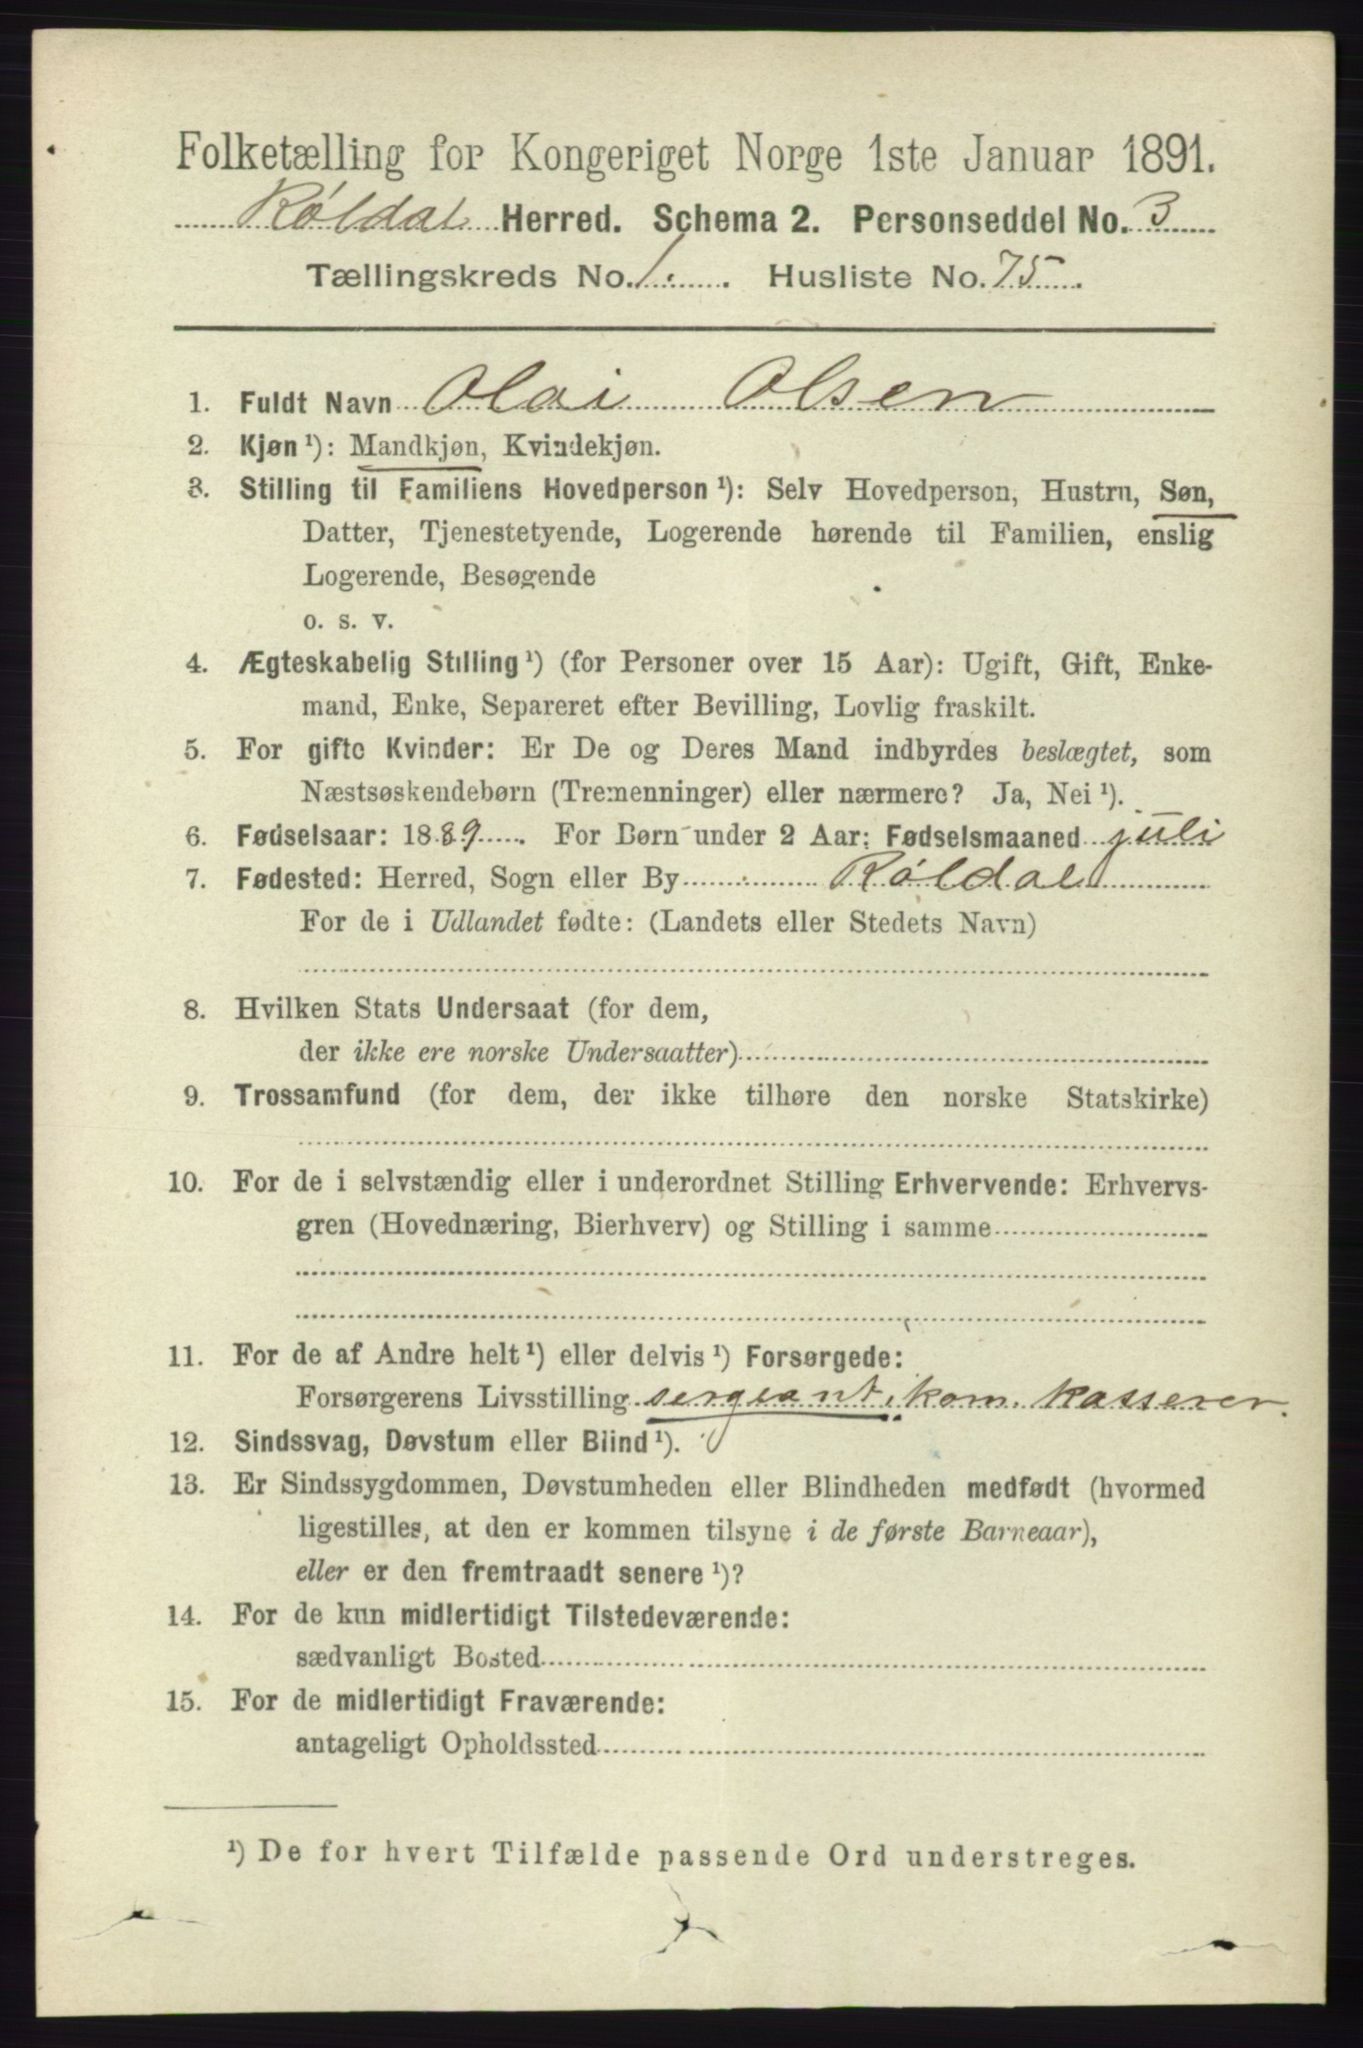 Folketælling for Kongeriget Norge 1ste Januar 1891.
Røldal Herred. Schema 2. Personseddel No. 3
Tællingskreds No. 1. Husliste No. 75
1. Fuldt Navn Olai Olsen
2. Kjøn¹): Mandkjøn, Kvindekjøn.
3. Stilling til Familiens Hovedperson¹): Selv Hovedperson, Hustru, Søn,
Datter, Tjenestetyende, Logerende hørende til Familien, enslig
Logerende, Besøgende
o. s. v.
4. Ægteskabelig Stilling¹) (for Personer over 15 Aar): Ugift, Gift, Enke-
mand, Enke, Separeret efter Bevilling, Lovlig fraskilt.
5. For gifte Kvinder: Er De og Deres Mand indbyrdes beslægtet, som
Næstsøskendebørn (Tremenninger) eller nærmere? Ja, Nei¹).
6. Fødselsaar: 1889. For Børn under 2 Aar: Fødselsmaaned juli
7. Fødested: Herred, Sogn eller By Røldal
For de i Udlandet fødte: (Landets eller Stedets Navn)
8. Hvilken Stats Undersaat (for dem,
der ikke ere norske Undersaatter)
9. Trossamfund (for dem, der ikke tilhøre den norske Statskirke)
10. For de i selvstændig eller i underordnet Stilling Erhvervende: Erhvervs-
gren (Hovednæring, Bierhverv) og Stilling i samme
11. For de af Andre helt¹) eller delvis¹) Forsørgede:
Forsørgerens Livsstilling sergeant, kom. kasserer.
12. Sindssvag, Døvstum eller Blind¹).
13. Er Sindssygdommen, Døvstumheden eller Blindheden medfødt (hvormed
ligestilles, at den er kommen tilsyne i de første Barneaar),
eller er den fremtraadt senere¹)?
14. For de kun midlertidigt Tilstedeværende:
sædvanligt Bosted
15. For de midlertidigt Fraværende:
antageligt Opholdssted
¹) De for hvert Tilfælde passende Ord understreges.